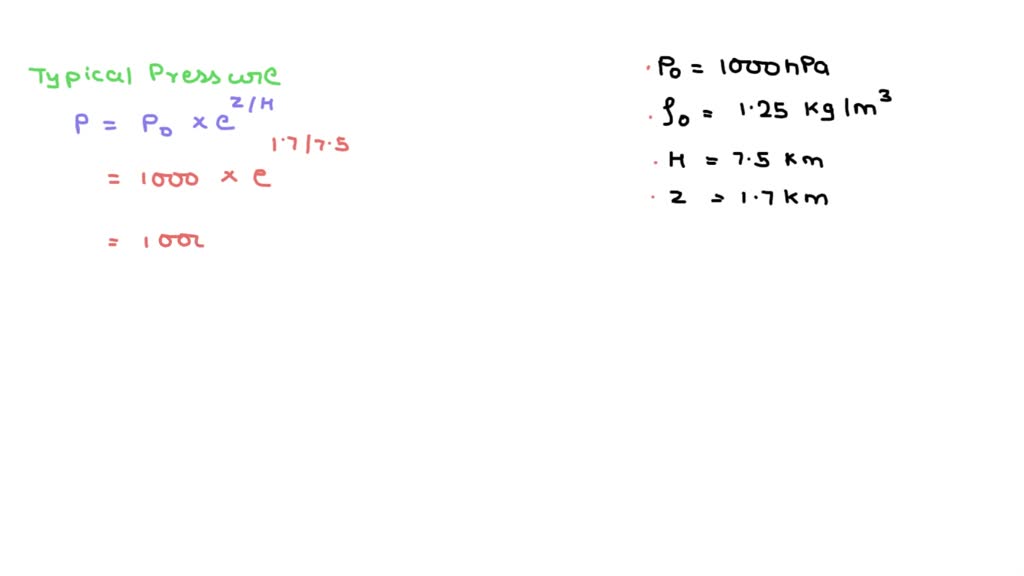 Typical Pressure
P = P₀ × e^(z/H)
= 1000 × e^(1.7/7.5)
= 1000
· P₀ = 1000 hPa
· ρ₀ = 1.25 kg/m³
· H = 7.5 km
· z = 1.7 km